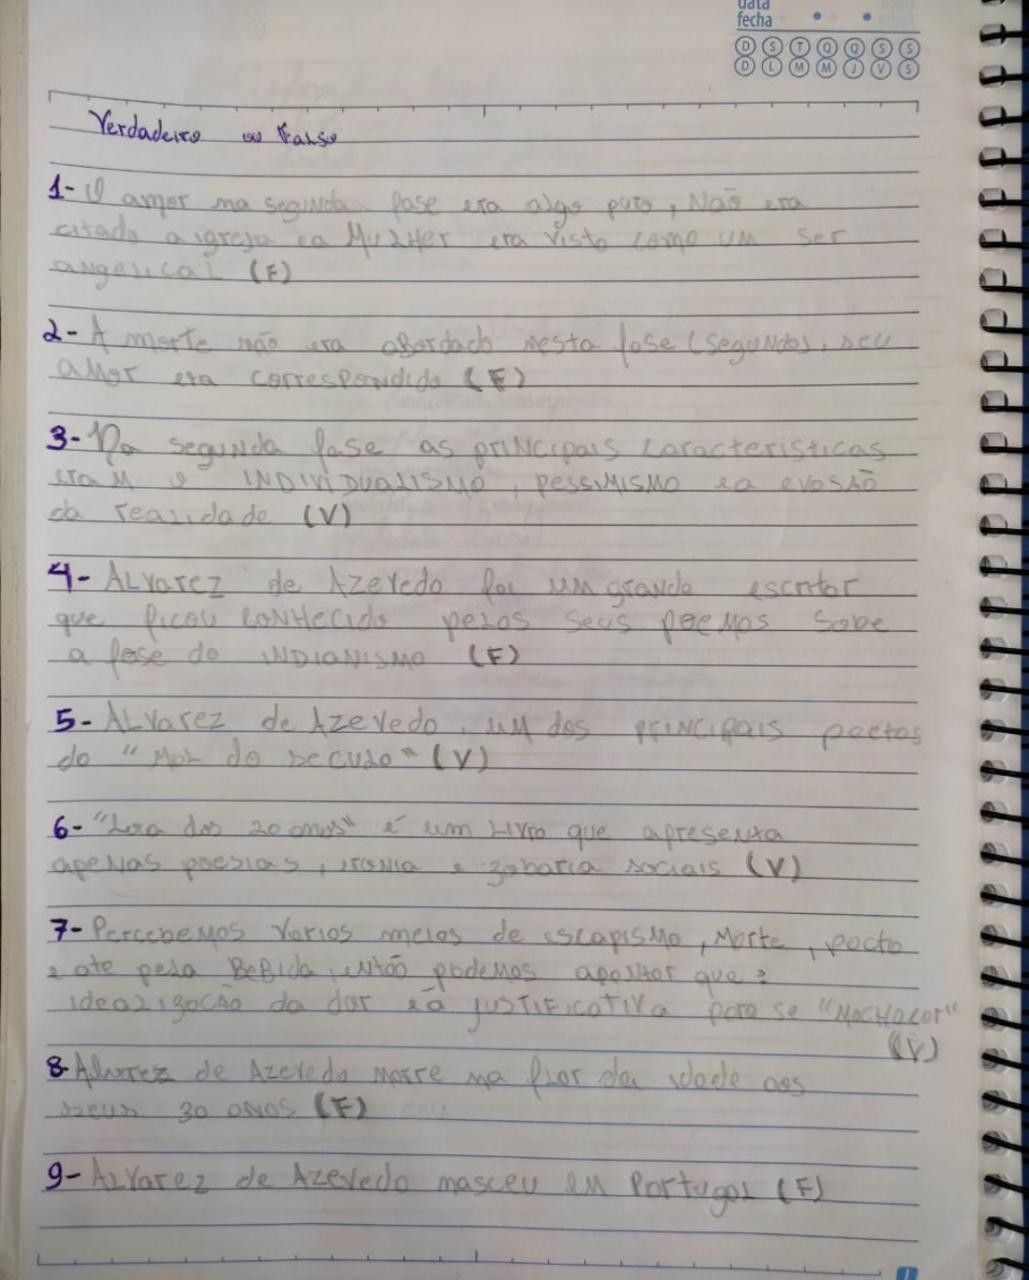 data
fecha
D S T Q Q S S
D L M M J V S
Verdadeiro ou Falso
1- O amor na segunda fase era algo puro, Não era
citado a igreja e a Mulher era visto como um ser
angelical (F)
2- A morte não era abordado nesta fase (segunda), seu
amor era correspondido (F)
3- Na segunda fase as principais características
eram o INDIVIDUALISMO, PESSIMISMO e a evasão
da realidade (V)
4- Alvarez de Azevedo foi um grande escritor
que ficou conhecido pelos seus poemas sobe
a fase do INDIANISMO (F)
5- Alvarez de Azevedo, um dos principais poetas
do "Mal do seculo" (V)
6- "Lira dos 20 anos" é um Livro que apresenta
apenas poesias, ironia e zobaria sociais (V)
7- Percebemos varios meios de escapismo, Morte, pacto
e ate pela Bebida, então podemos apontar que:
idealização da dor e a justificativa para se "Machacar"
(V)
8- Alvarez de Azevedo morre na flor da idade aos
seus 30 anos (F)
9- Alvarez de Azevedo nasceu em Portugal (F)